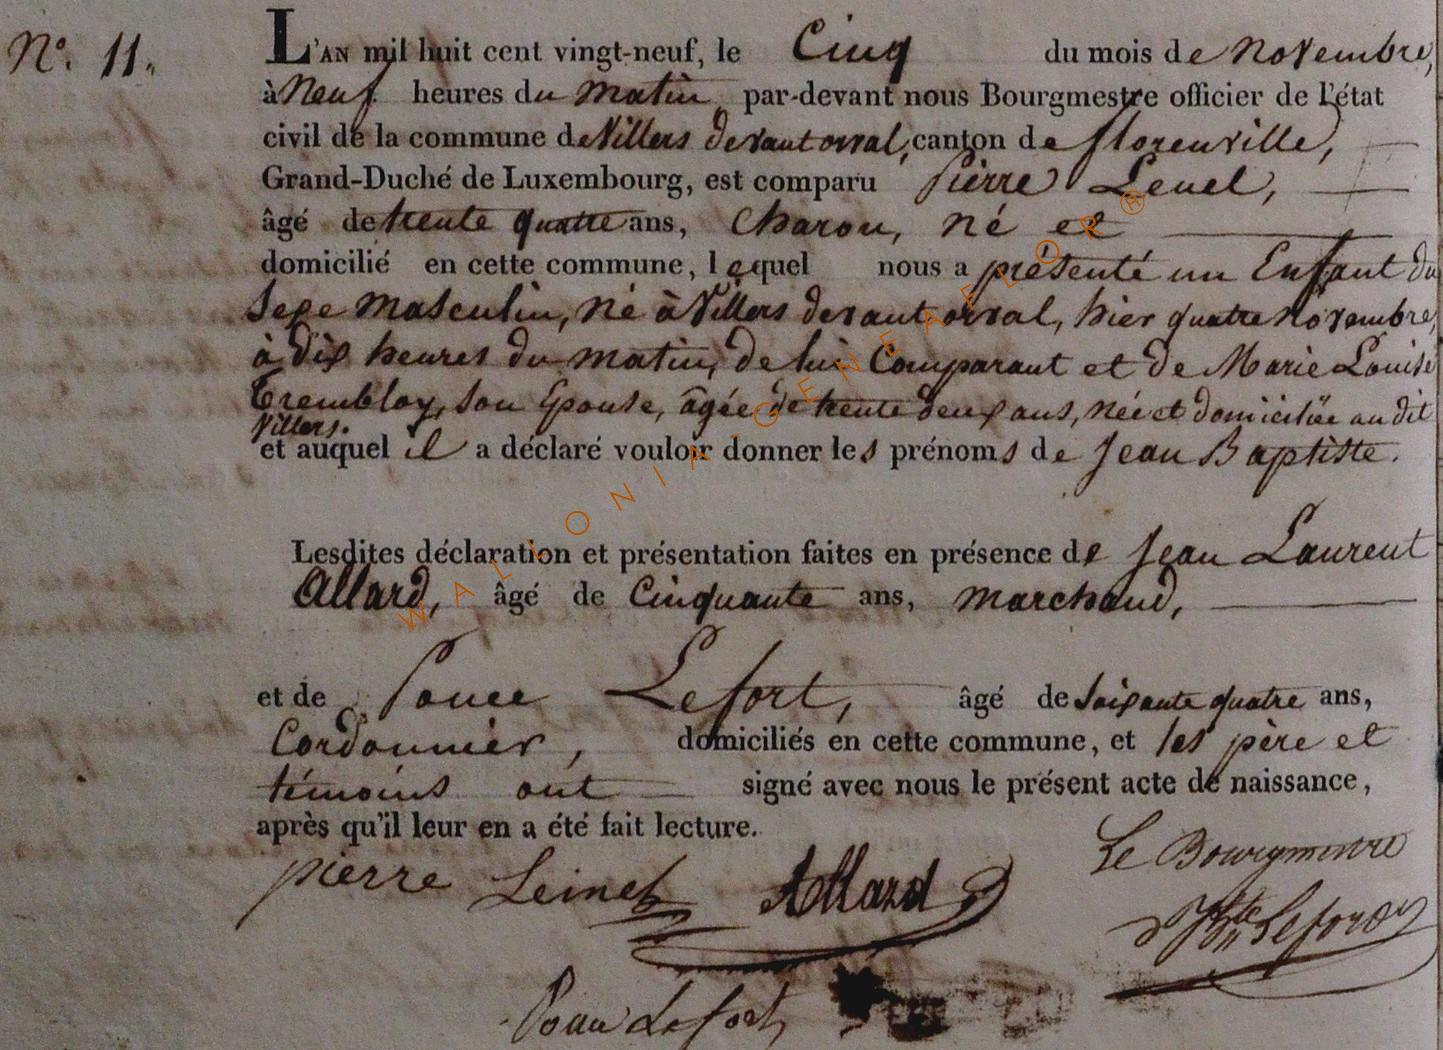 N.° 11. L'AN mil huit cent vingt-neuf, le Cinq du mois de Novembre,
à Neuf heures du Matin par-devant nous Bourgmestre officier de l'état
civil de la commune de Villers devant orval, canton de florenville,
Grand-Duché de Luxembourg, est comparu Pierre Lenel,
âgé de trente quatre ans, Charon, né et
domicilié en cette commune, lequel nous a présenté un Enfant du
Sexe Masculin, né à Villers devant orval, hier quatre novembre,
à dix heures du matin, de lui Comparant et de Marie Louise
Trembloy, son Epouse, âgée de trente deux ans, née et domiciliée au dit
Villers.
et auquel il a déclaré vouloir donner les prénoms de Jean Baptiste.
Lesdites déclaration et présentation faites en présence de Jean Laurent
Allard, âgé de Cinquante ans, marchand,
et de Ponce Lefort, âgé de Soixante quatre ans,
Cordonnier, domiciliés en cette commune, et les père et
témoins ont signé avec nous le présent acte de naissance,
après qu'il leur en a été fait lecture.
Le Bourgmestre
pierre Leinel Allard
Lefort
WALLONIA-GENEALOPA®